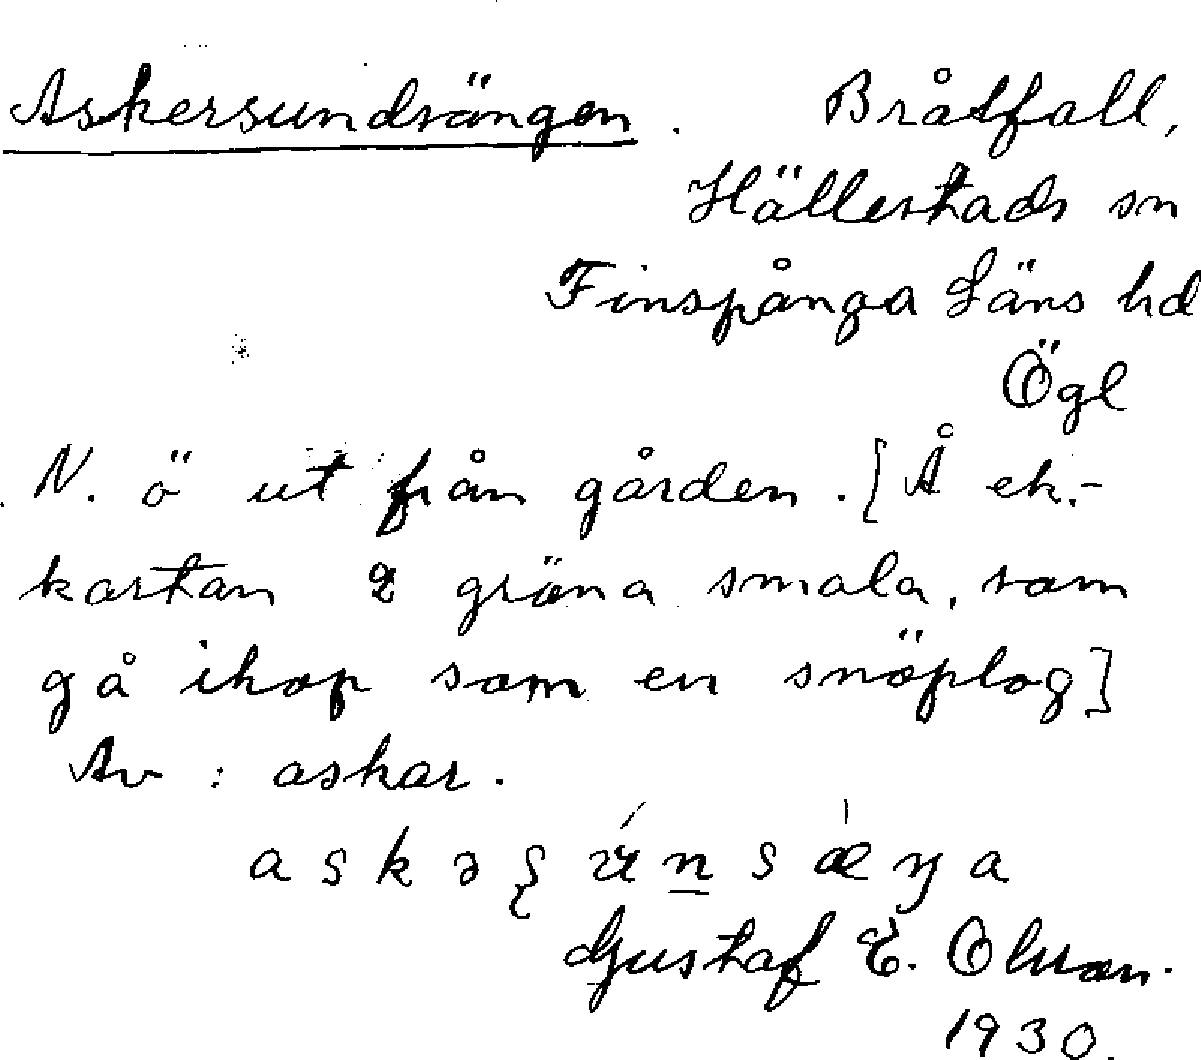 Askersundsängen. Bråtfall,
Hällestads sn
Finspånga Läns hd
Ögl
N. ö ut från gården. [Å ek.-
kartan 2 gröna smala, som
gå ihop som en snöplog]
Av : askar.
Gustaf E. Olsson.
1930.